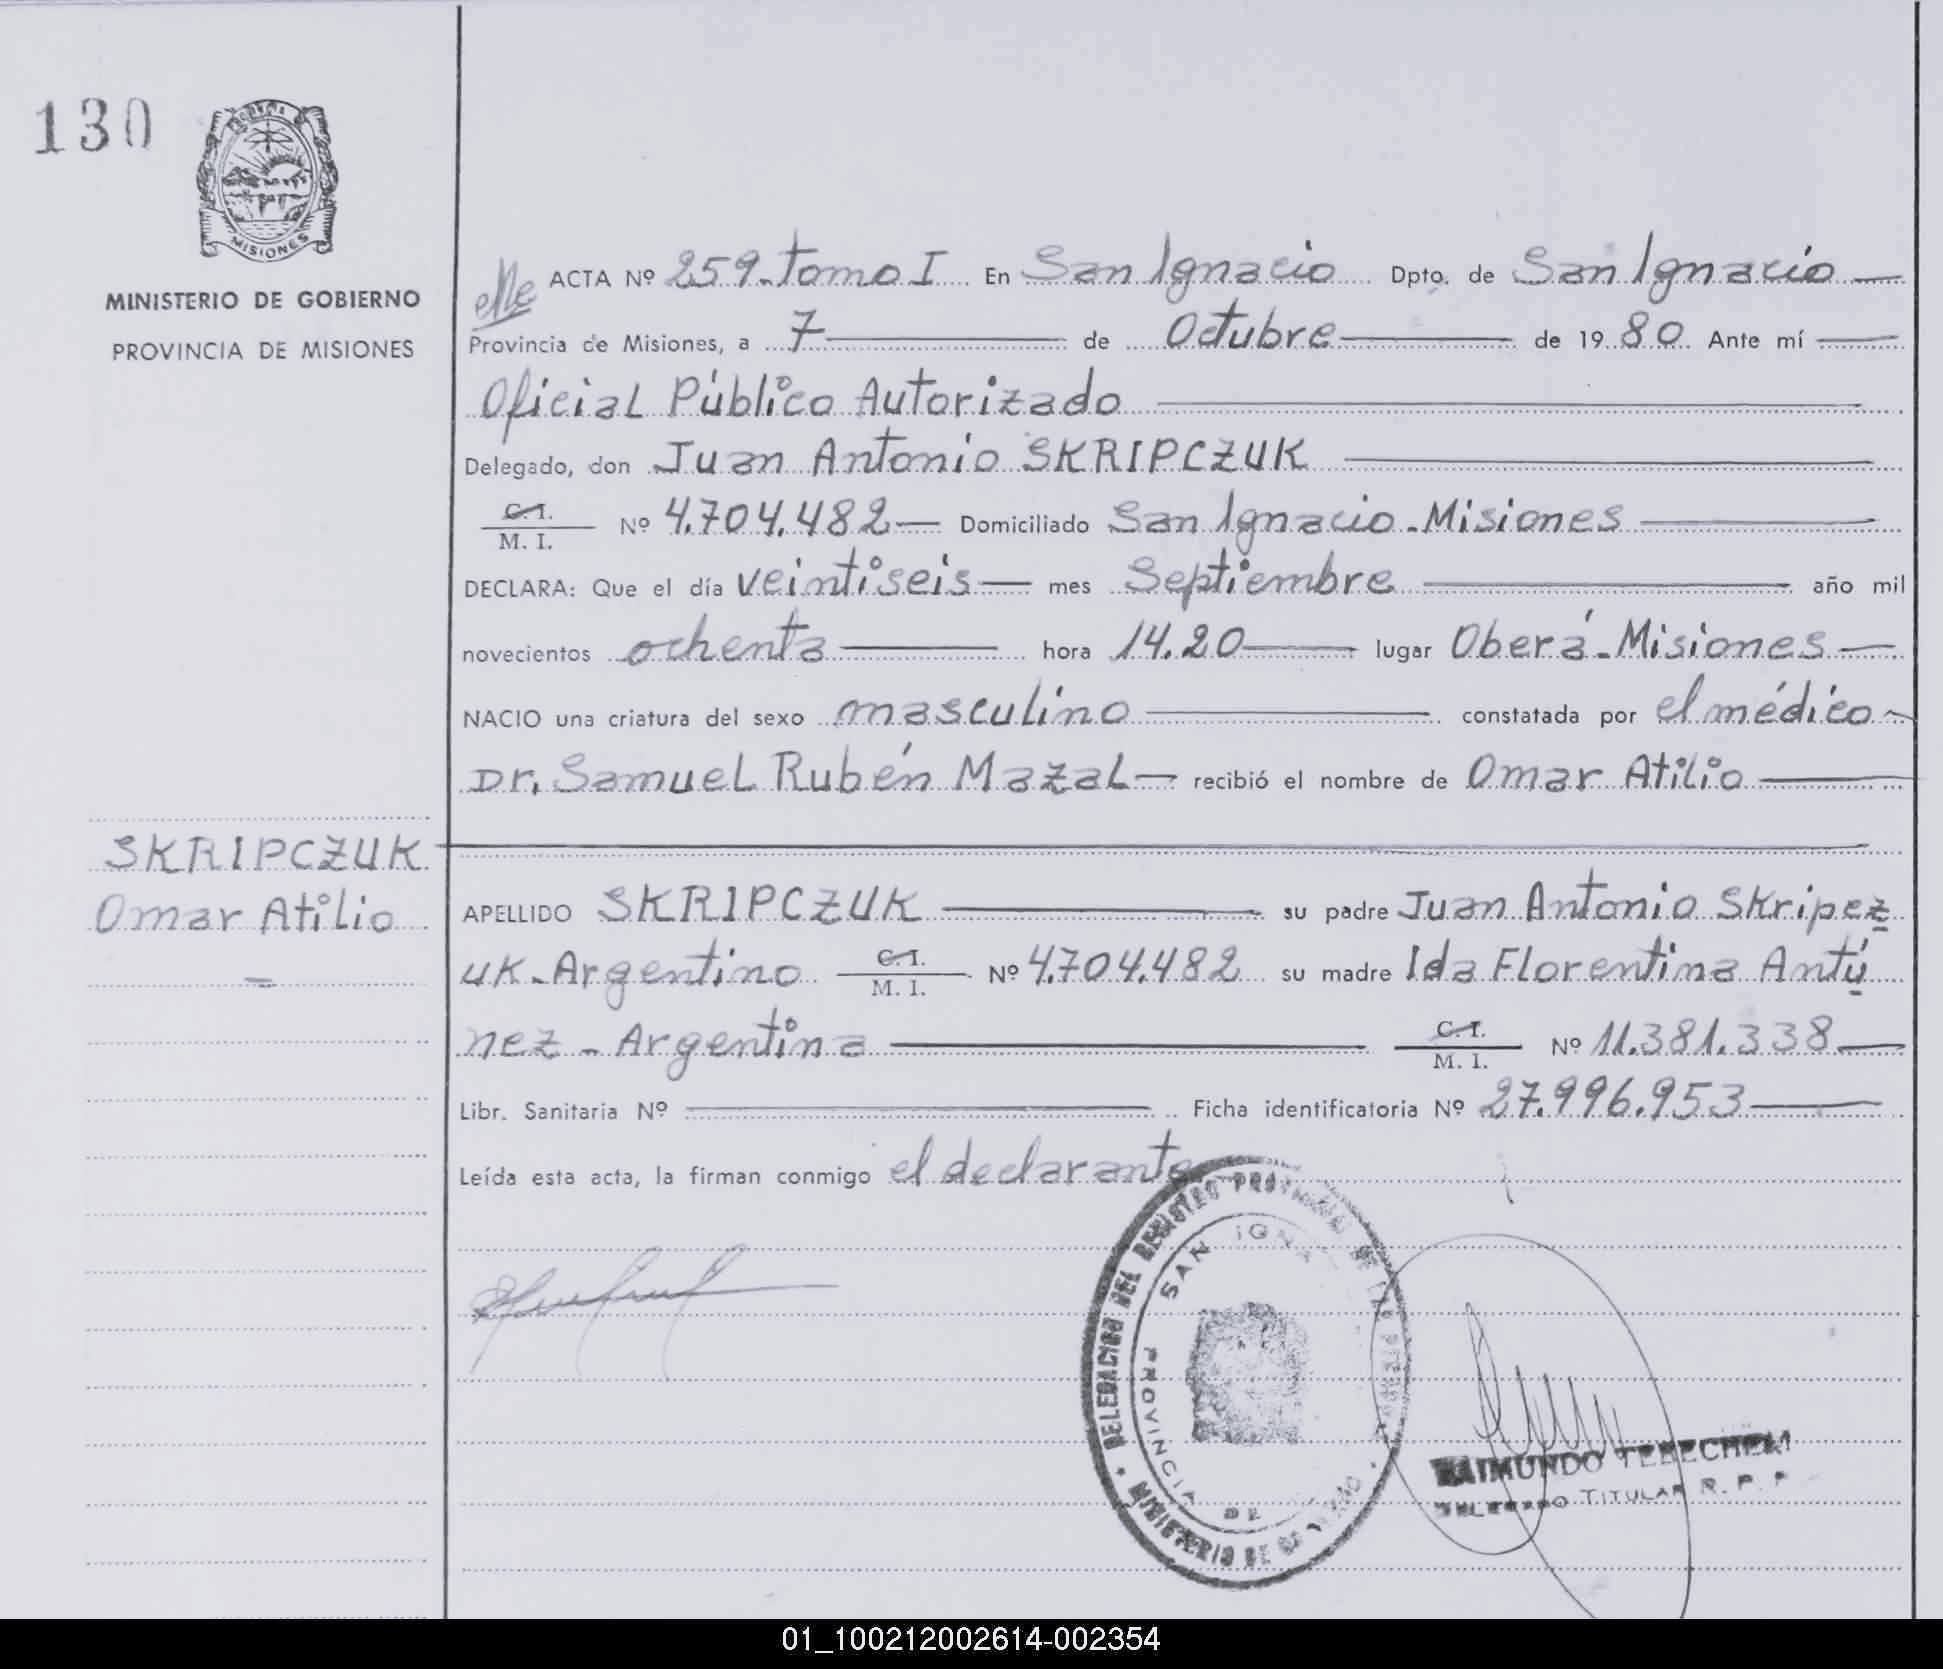 130
MISIONES
MINISTERIO DE GOBIERNO
PROVINCIA DE MISIONES
SKRIPCZUK
Omar Atilio
ACTA Nº 259-Tomo I En San Ignacio Dpto. de San Ignacio
Provincia de Misiones, a 7 de Octubre de 1980 Ante mí
Oficial Público Autorizado
Delegado, don Juan Antonio SKRIPCZUK
C. I.
M. I. Nº 4.704.482 Domiciliado San Ignacio-Misiones
DECLARA: Que el día veintiseis mes Septiembre año mil
novecientos ochenta hora 14.20 lugar Oberá-Misiones
NACIO una criatura del sexo masculino constatada por el médico
Dr. Samuel Rubén Mazal recibió el nombre de Omar Atilio
APELLIDO SKRIPCZUK su padre Juan Antonio Skripcz
uk-Argentino C. I. M. I. Nº 4.704.482 su madre Ida Florentina Antú
nez - Argentina C. I. M. I. Nº 11.381.338
Libr. Sanitaria Nº Ficha identificatoria Nº 27.996.953
Leída esta acta, la firman conmigo el declarante
DELEGACION DEL REGISTRO PROVINCIAL DE LAS
SAN IGNA
PROVINCIA DE
MINISTERIO DE
RAIMUNDO TEBECHEM
DELEGADO TITULAR R. P. P
01_100212002614-002354